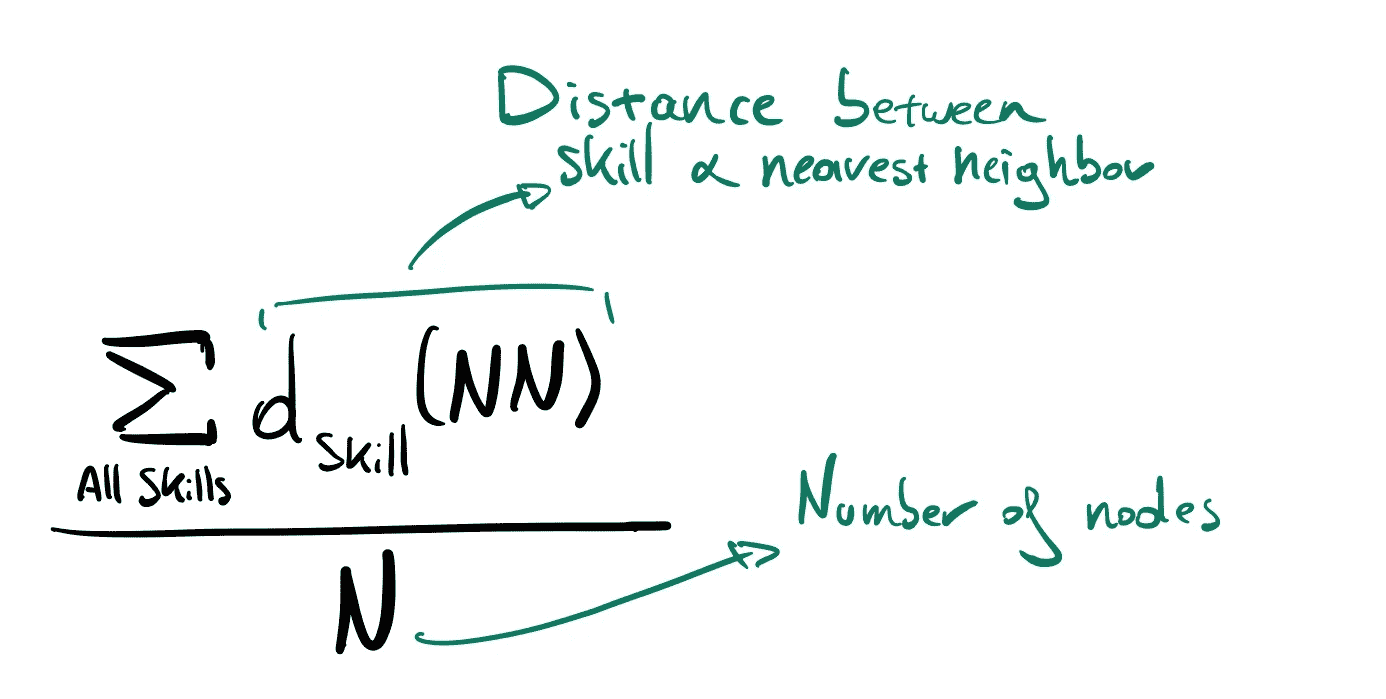 Distance between
skill & nearest neighbor
∑ d skill (NN)
All Skills
N
Number of nodes